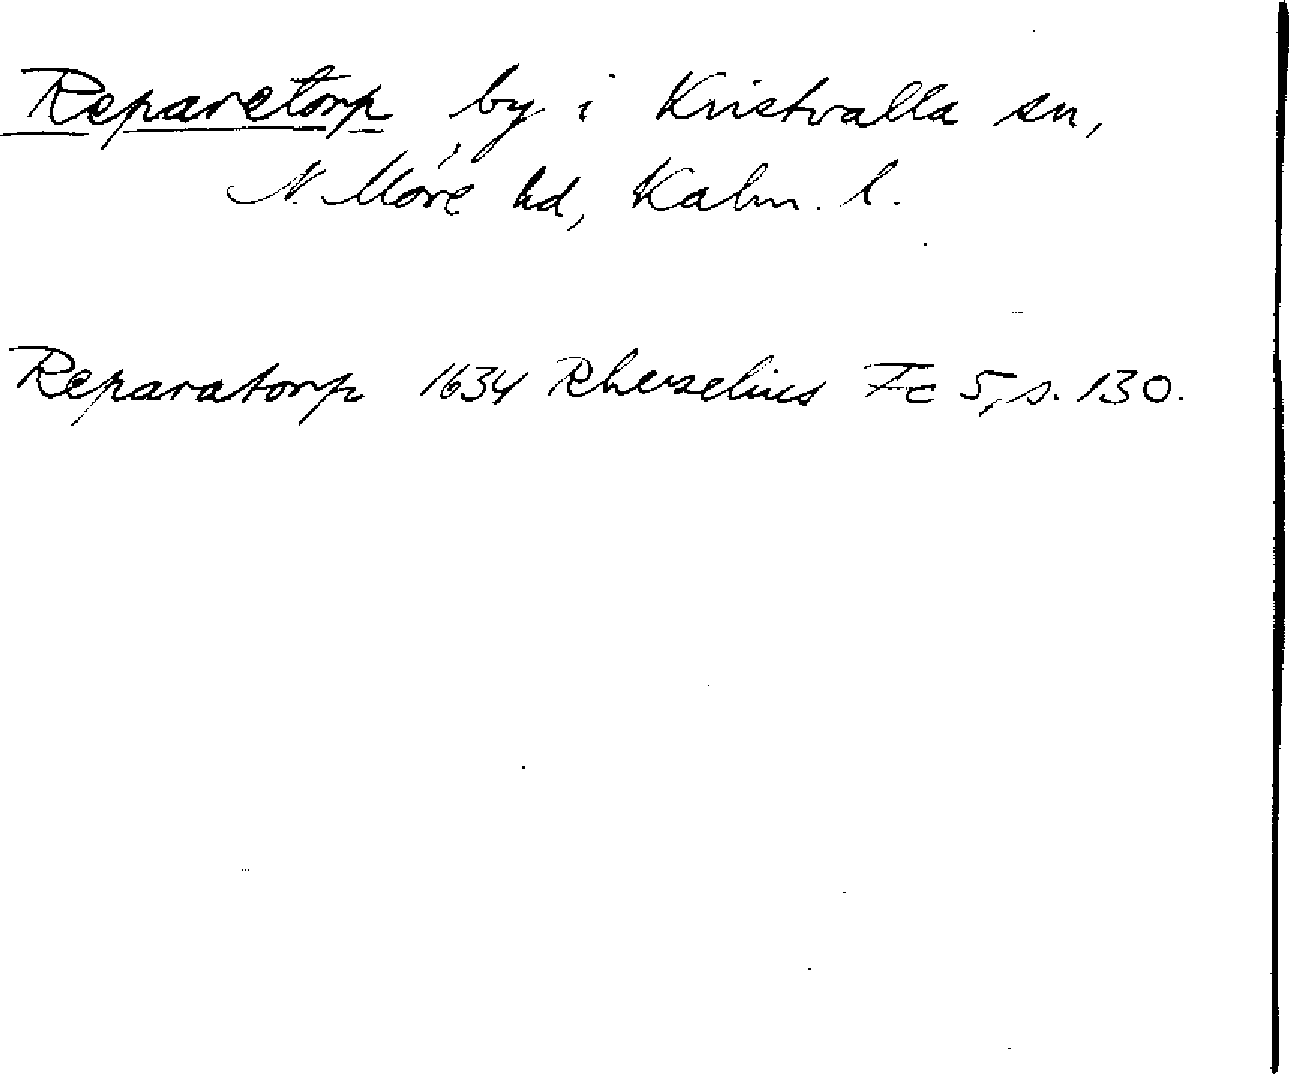 Reparetorp by i Kristvalla sn,
N. Möre hd, Kalm. l.
Reparatorp 1634 Rhezelius Fc 5, s. 130.